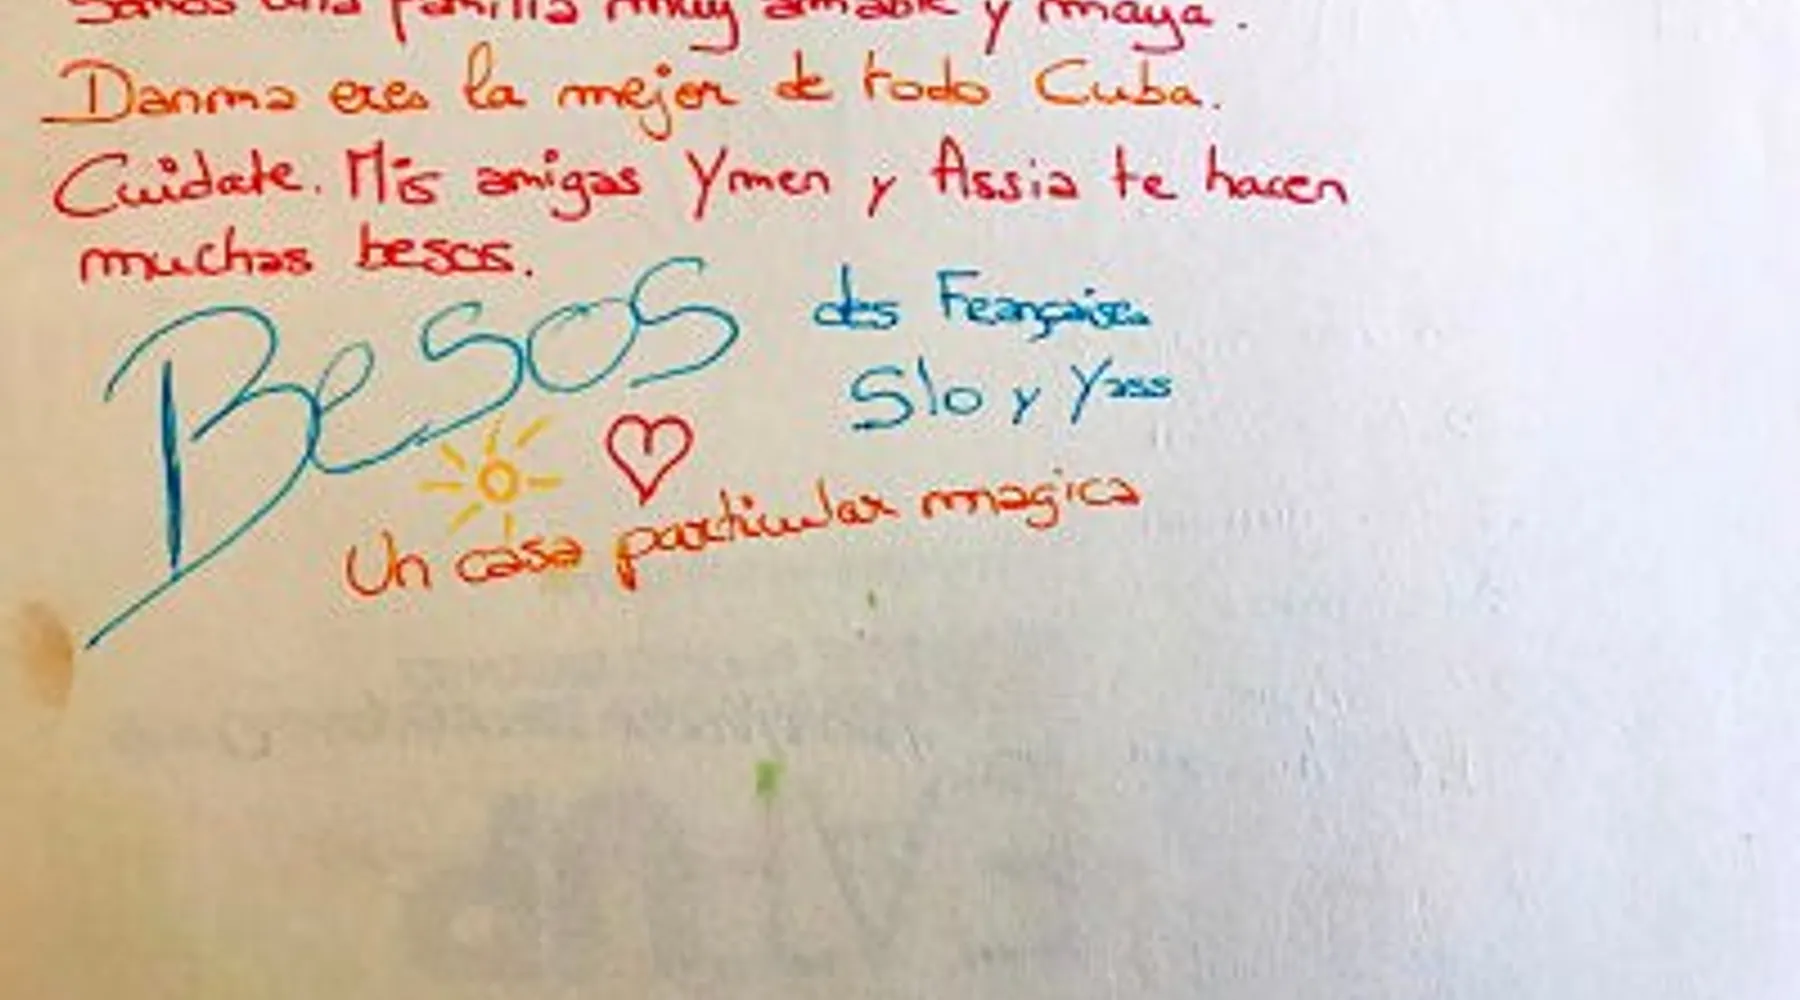 una familia muy amable y maya.
Danma eres la mejor de todo Cuba.
Cuidate. Mis amigas Ymen y Assia te hacen
muchas besos.
Besos des Françaises
Slo y Yass
Un casa particular magica